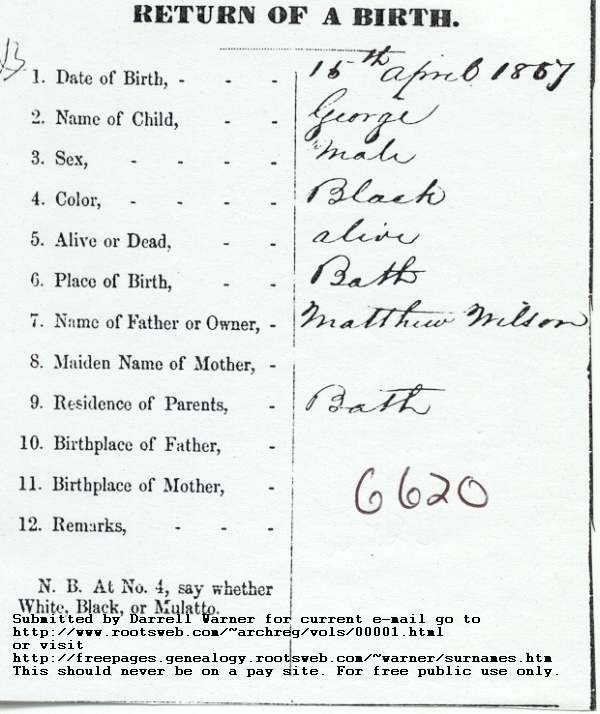 RETURN OF A BIRTH.
1. Date of Birth, - - - 15th April 1857
2. Name of Child, - - George
3. Sex, - - - - Male
4. Color, - - - - Black
5. Alive or Dead, - - alive
6. Place of Birth, - - Bath
7. Name of Father or Owner, - Matthew Wilson
8. Maiden Name of Mother, -
9. Residence of Parents, - Bath
10. Birthplace of Father, -
11. Birthplace of Mother, -
6620
12. Remarks, - - -
N. B. At No. 4, say whether
White, Black, or Mulatto.
Submitted by Darrell Warner for current e-mail go to
http://www.rootsweb.com/~archreg/vols/00001.html
or visit
http://freepages.genealogy.rootsweb.com/~warner/surnames.htm
This should never be on a pay site. For free public use only.